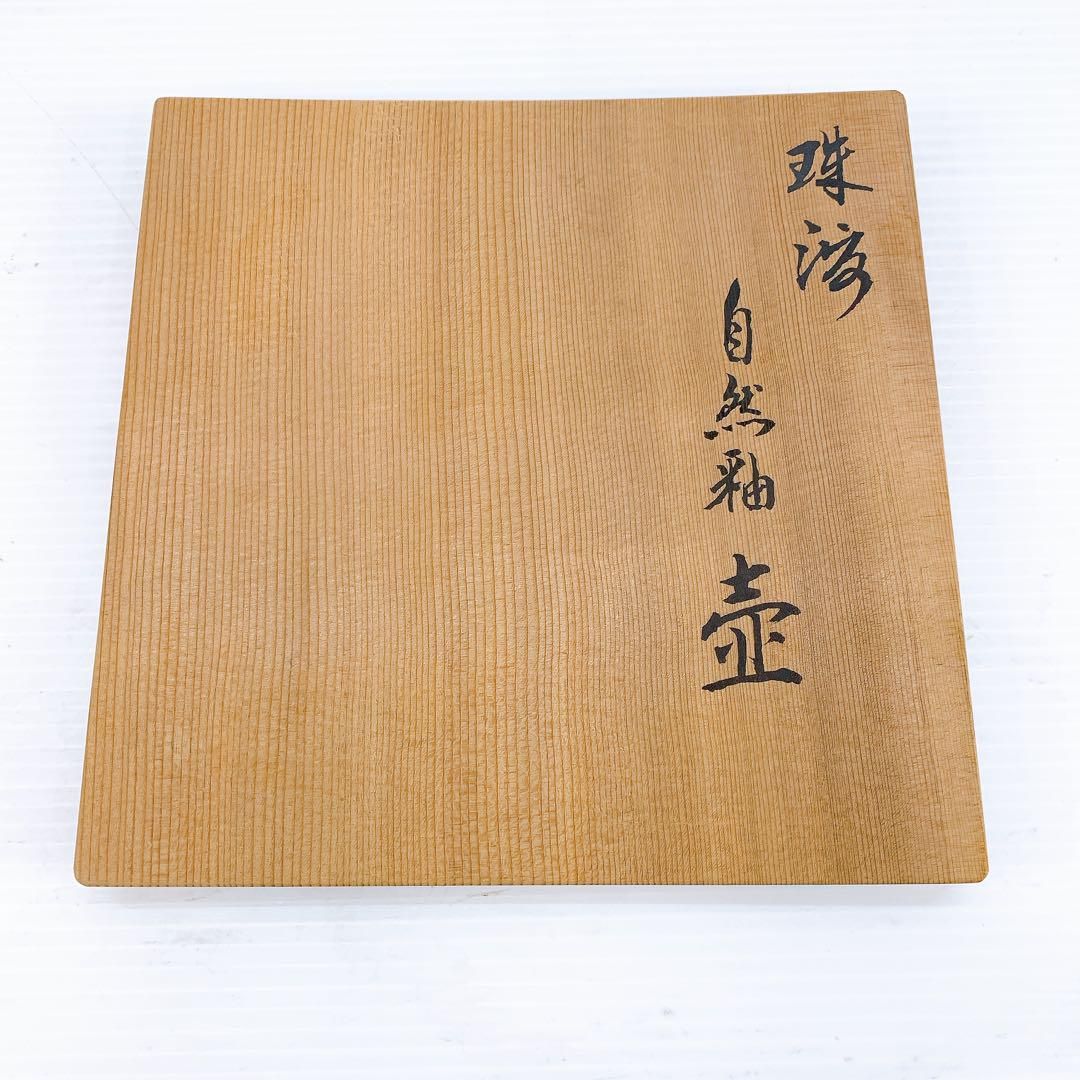 珠洲
自然釉 壷